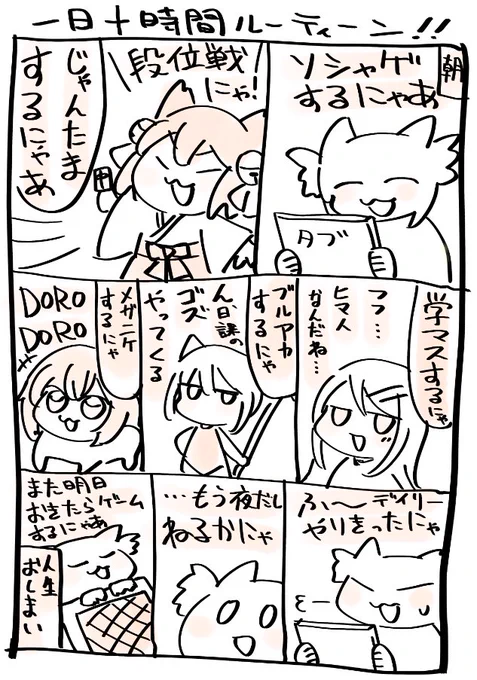 一日十時間ルーティーン!!
朝
ソシャゲ
するにゃあ
タブ
段位戦
にゃ!
じゃんたま
するにゃあ
学マスするにゃ
フフ…
ヒマ人
なんだね…
ブルアカ
するにゃ
ん、日課の
ゴズ
やってくる
メガニケ
するにゃ
DORO
DORO
ふ〜デイリー
やりきったにゃ
…もう夜だし
ねるかにゃ
また明日
おきたらゲーム
するにゃあ
人生
おしまい